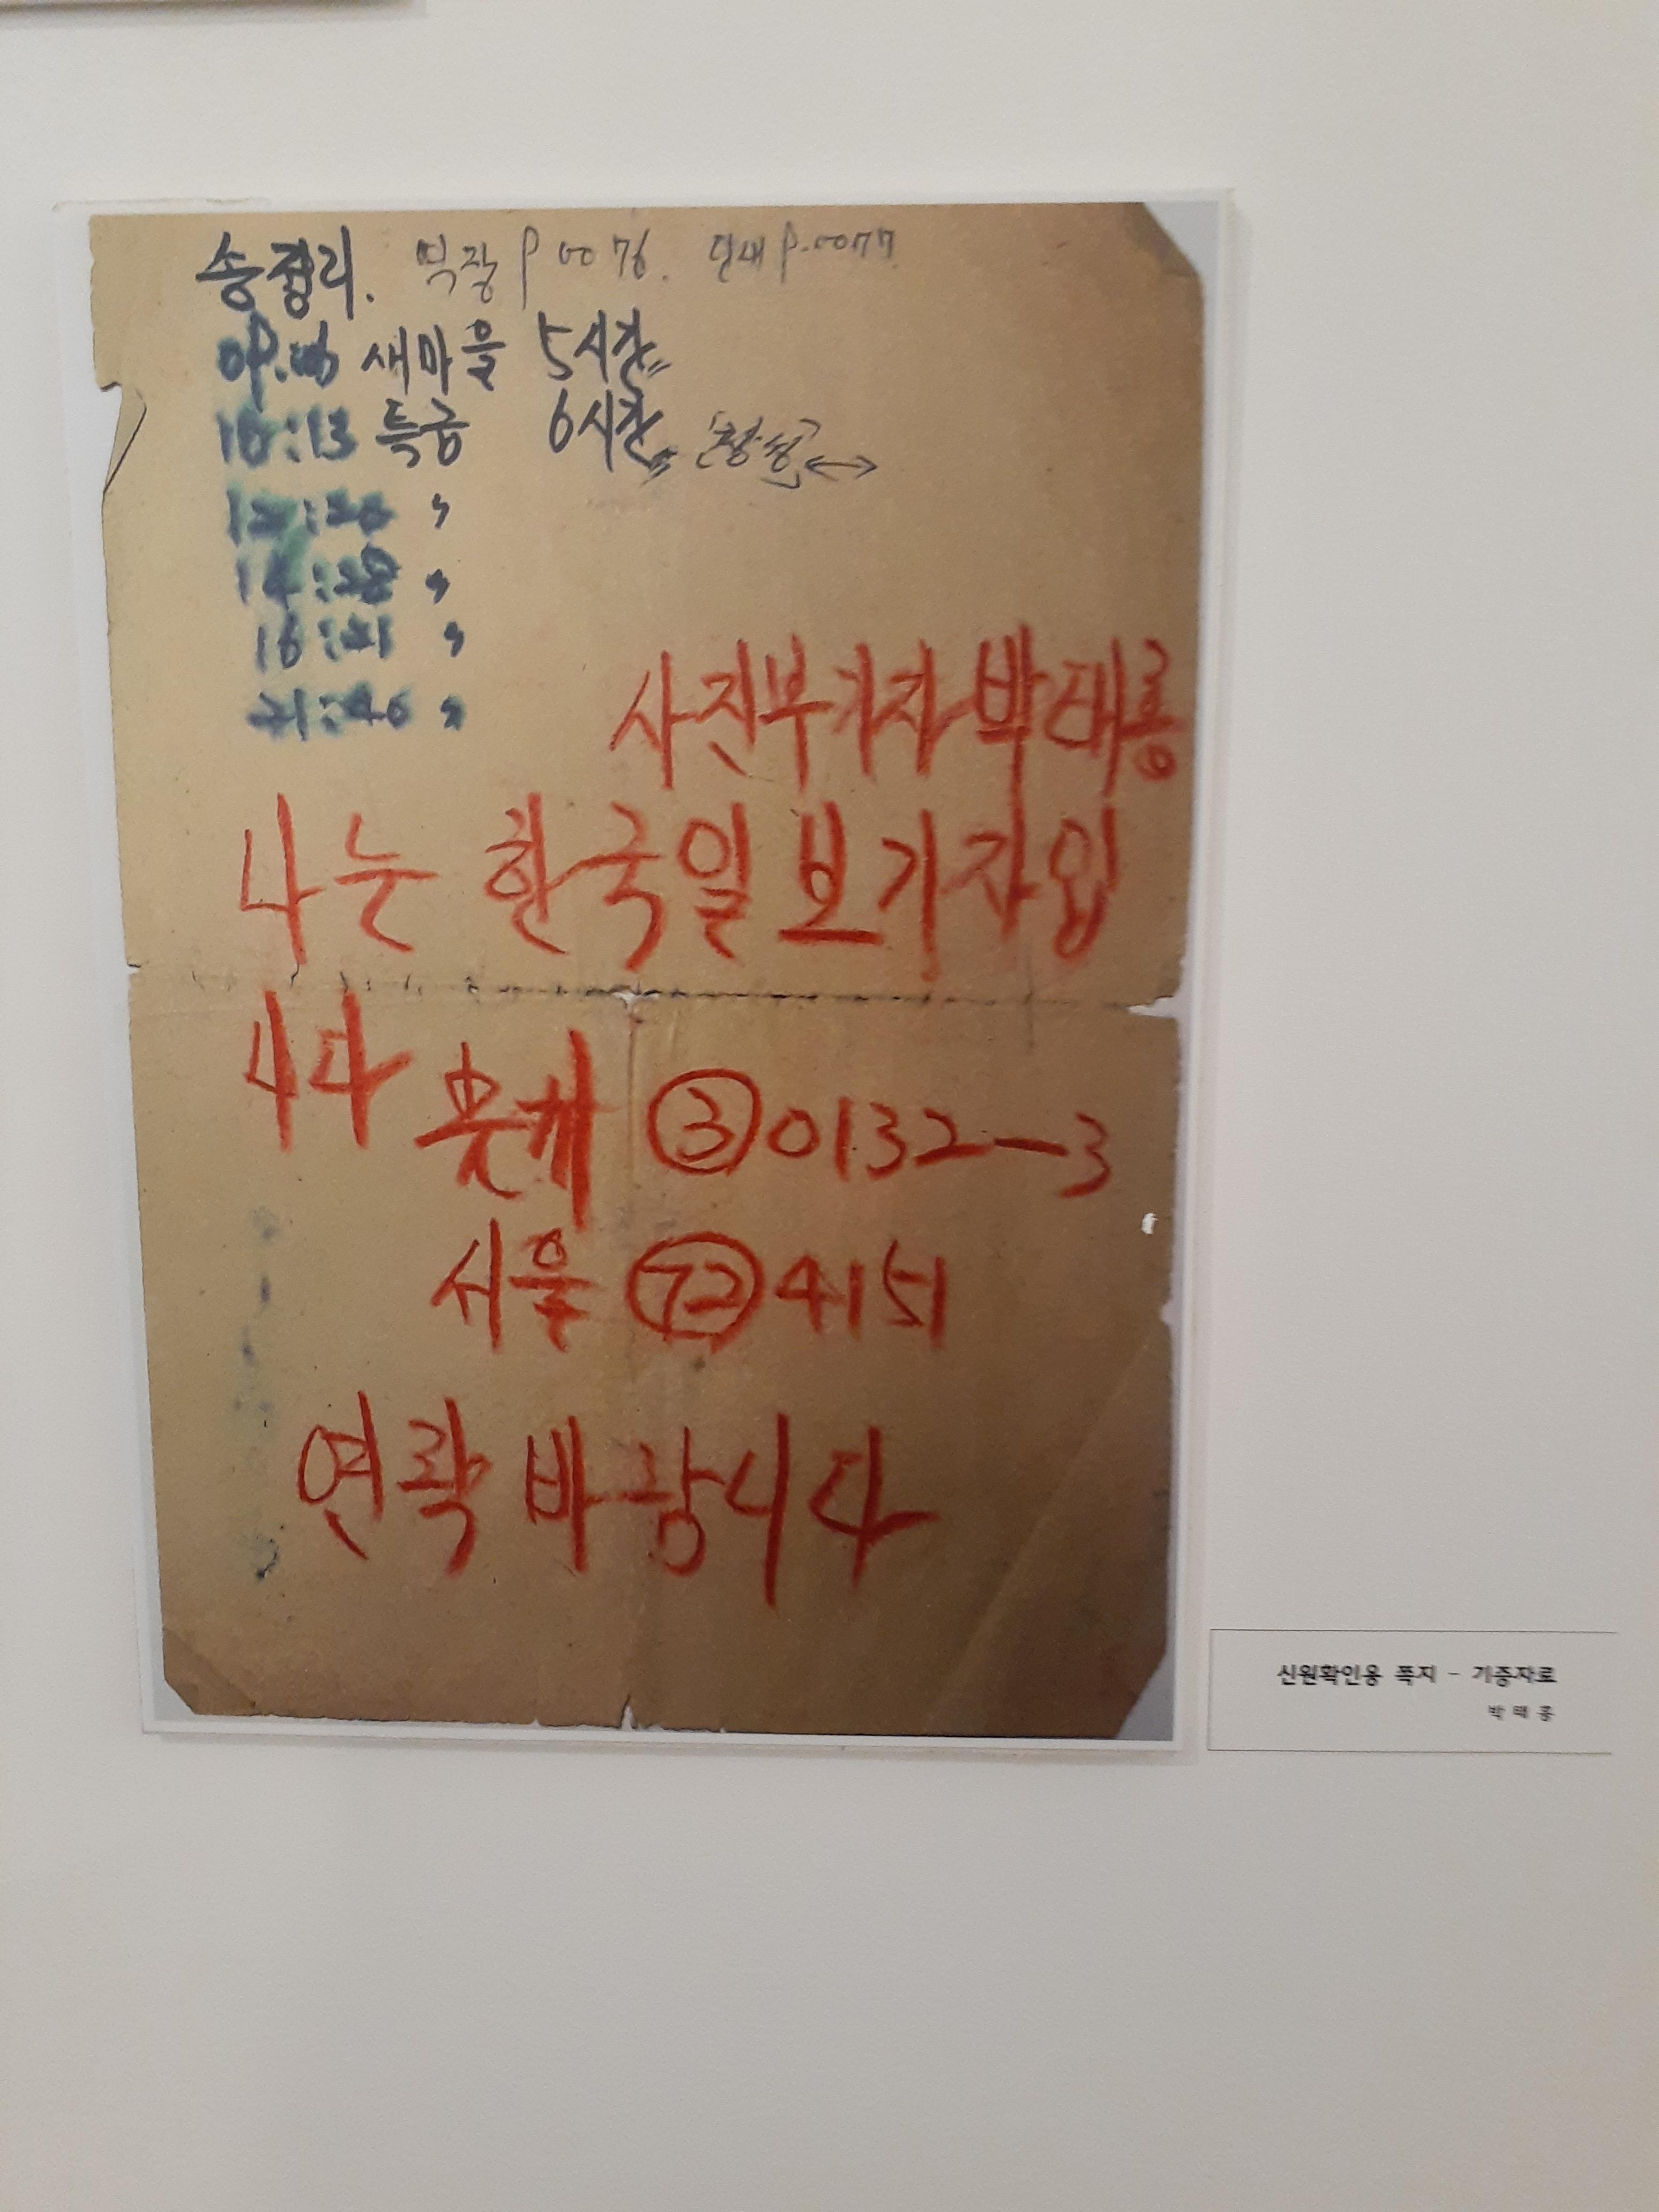 송정리. 역장 P 0076. 안내 P.0077
09:06 새마을 5시간〃
10:13 특급 6시간〃
12:26 〃
14:28 〃
16:21 〃
21:46 〃
사진부기자 박태홍
나는 한국일보기자입
니다
③0132-3
서울 ㉒4151
연락바랍니다
신원확인용 쪽지 - 기증자료
박태홍